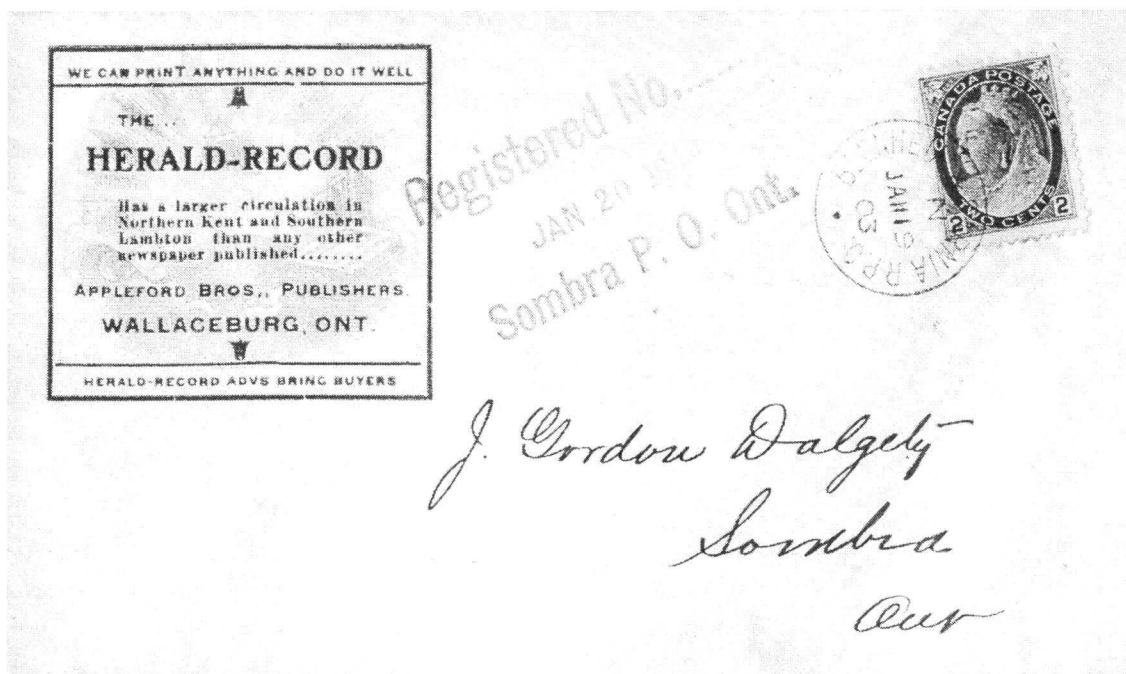 WE CAN PRINT ANYTHING AND DO IT WELL
THE ..
HERALD-RECORD
Has a larger circulation in
Northern Kent and Southern
Lambton than any other
newspaper published........
APPLEFORD BROS., PUBLISHERS.
WALLACEBURG, ONT.
HERALD-RECORD ADVS BRING BUYERS
Registered No.
JAN 20
Sombra P. O. Ont.
CANADA POSTAGE
2 TWO CENTS 2
JAN 19
03
J. Gordon Dalgety
Sombra
Ont